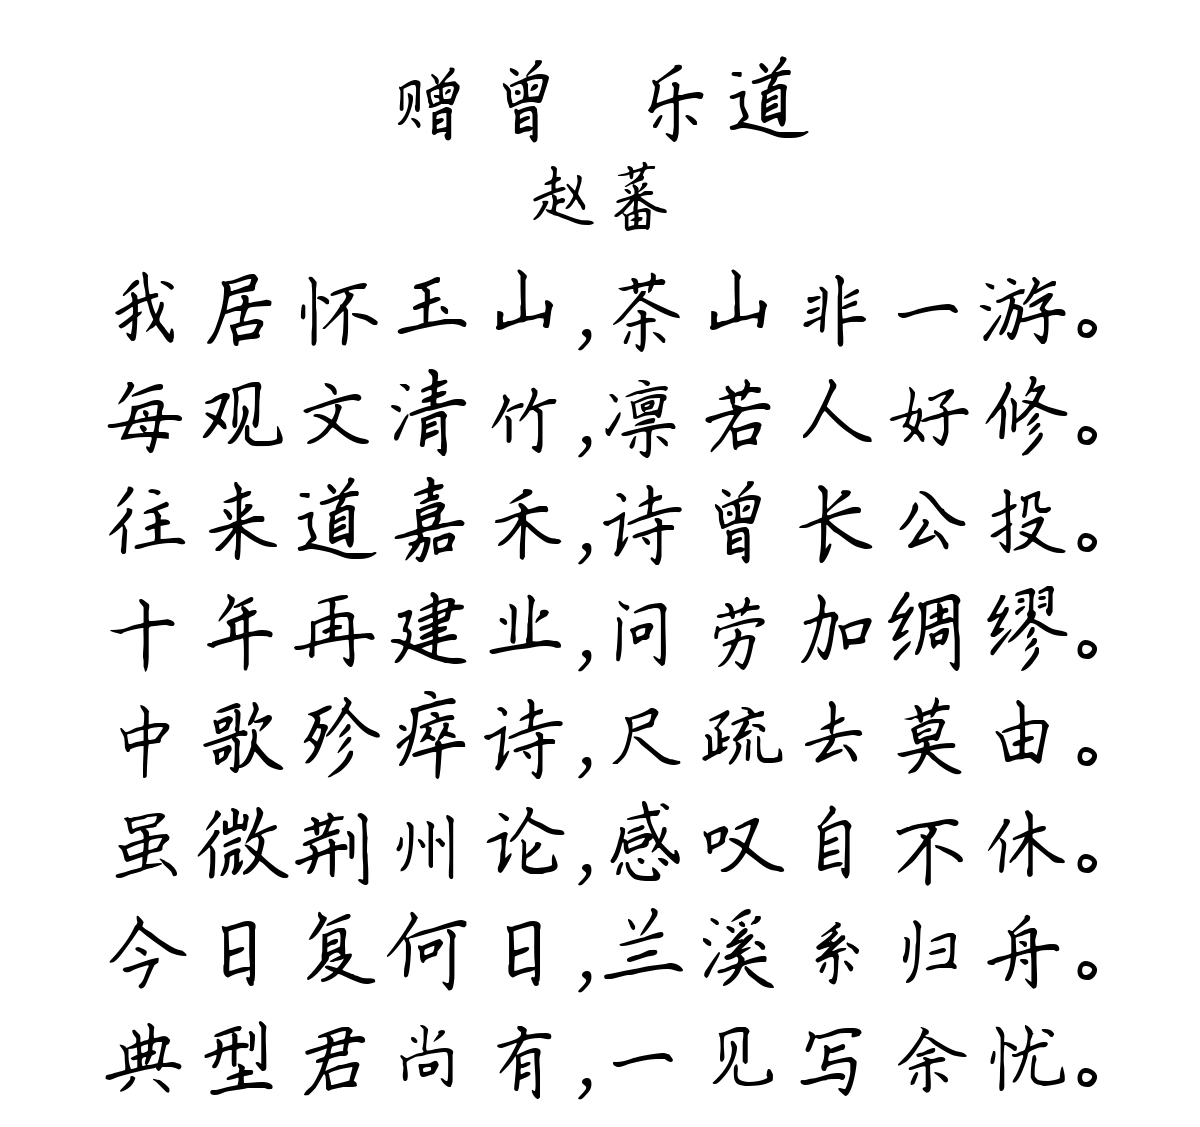 赠曾 乐道
赵蕃
我居怀玉山,茶山非一游。
每观文清竹,凛若人好修。
往来道嘉禾,诗曾长公投。
十年再建业,问劳加绸缪。
中歌殄瘁诗,尺疏去莫由。
虽微荆州论,感叹自不休。
今日复何日,兰溪系归舟。
典型君尚有,一见写余忧。